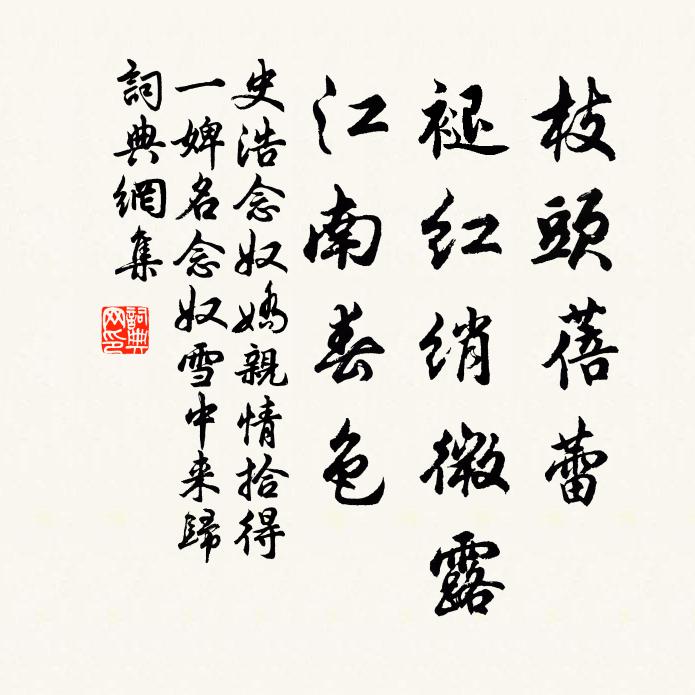 枝頭蓓蕾
褪红绡微露
江南春色
史浩念奴嬌親情拾得
一婢名念奴雪中来歸
詞典網集
詞典
网印